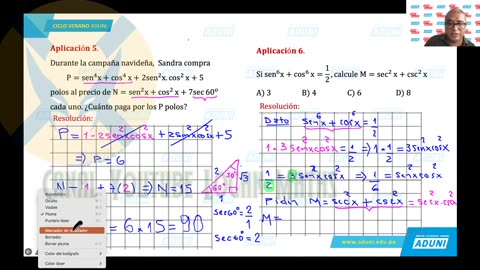 CICLO VERANO ADUNI
ADUNI
Aplicación 5.
Durante la campaña navideña, Sandra compra
P = sen⁴x + cos⁴x + 2sen²x.cos²x + 5
polos al precio de N = sen²x + cos²x + 7sec60º
cada uno. ¿Cuánto paga por los P polos?
Resolución:
P = 1-2sen²xcos²x + 2sen²xcos²x + 5
⇒ P = 6
N = 1 + 7(2) ⇒ N = 15
= 6 x 15 = 90
2
30°
60°
1
√3
Sec60° = 2/1
Sec60° = 2
Aplicación 6.
Si sen⁶x + cos⁶x = 1/2, calcule M = sec²x + csc²x
A) 3 B) 4 C) 6 D) 8
Resolución:
Dato: sen⁶x + cos⁶x = 1/2
1-3sen²xcos²x = 1/2 ⇒ 1-1/2 = 3sen²xcos²x
1/2 = 3sen²xcos²x ⇒ 1/6 = sen²xcos²x
Piden M = sec²x + csc²x = sec²x·csc²x
M =
Oculto
Visible
Pluma
Puntero láser
Marcador de resaltador
Borrador
Borrar pluma
Color del bolígrafo
Color láser
ADUNI
www.aduni.edu.pe